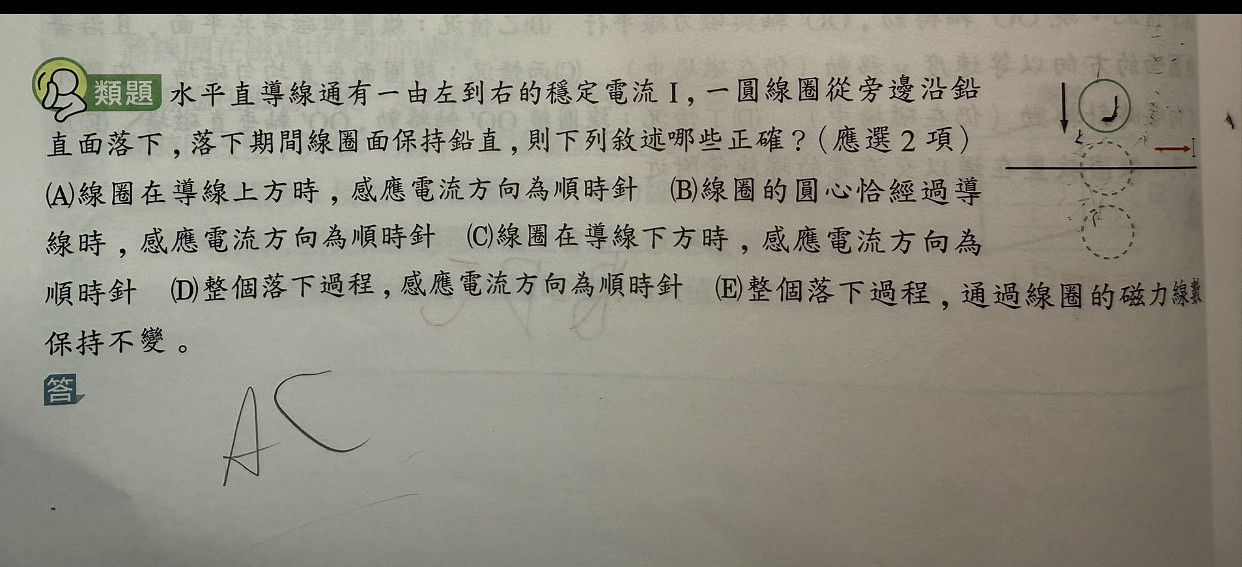 類題 水平直導線通有一由左到右的穩定電流 I，一圓線圈從旁邊沿鉛
直面落下，落下期間線圈面保持鉛直，則下列敘述哪些正確？（應選 2 項）
(A)線圈在導線上方時，感應電流方向為順時針 (B)線圈的圓心恰經過導
線時，感應電流方向為順時針 (C)線圈在導線下方時，感應電流方向為
順時針 (D)整個落下過程，感應電流方向為順時針 (E)整個落下過程，通過線圈的磁力線數
保持不變。
I
答
AC